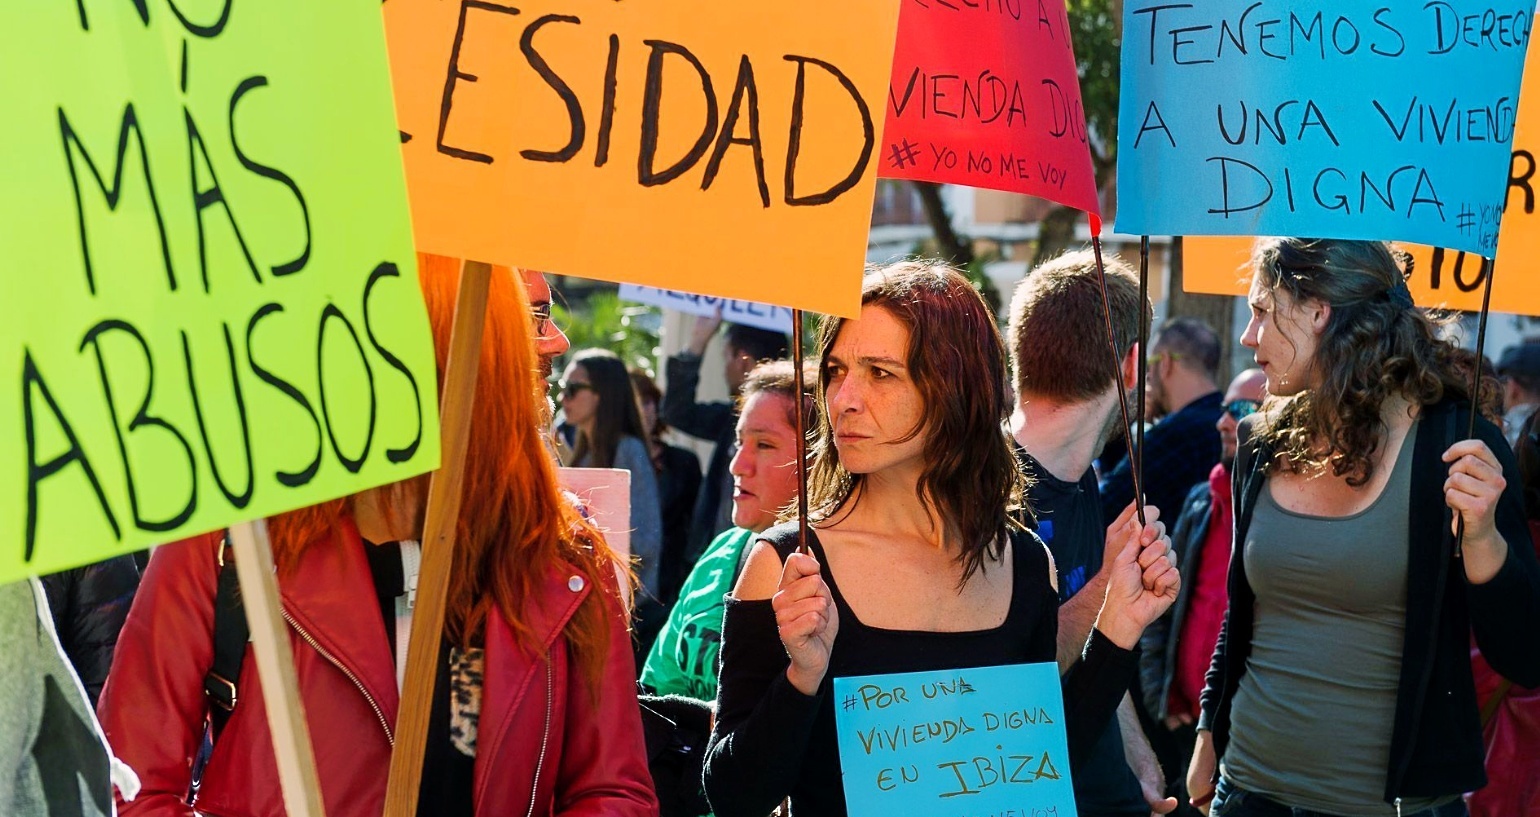 NO
MÁS
ABUSOS
ESIDAD
VIENDA DIG
# YO NO ME VOY
TENEMOS DERECH
A UNA VIVIEND
DIGNA
# YO NO
ME VO
#POR UNA
VIVIENDA DIGNA
EN IBIZA